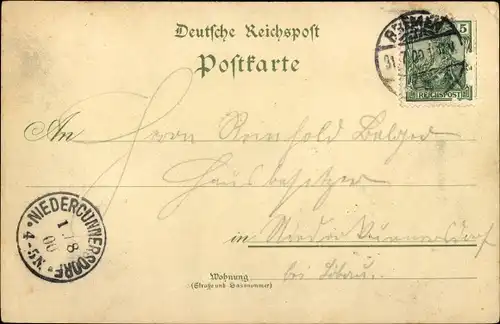 Deutsche Reichspost
Postkarte
BREMEN
31. 00
5
REICHSPOST
An Herrn Reinhold Belger
Hausbesitzer
in Niedercunnersdorf
bei Löbau.
NIEDERCUNNERSDORF
1 78
00
* 4-5N *
Wohnung
(Straße und Hausnummer)